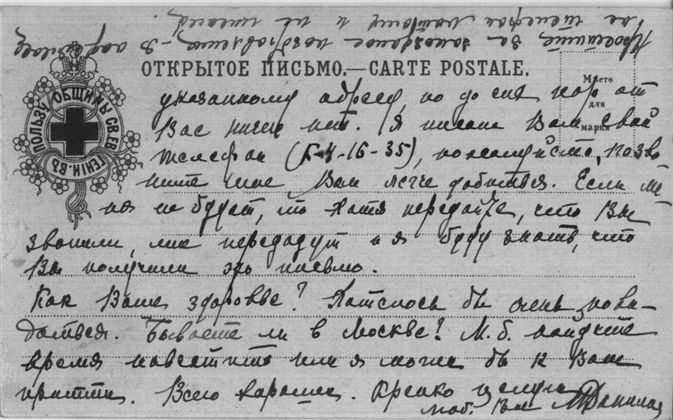 Простите за запоздалое поздравление - я
ОТКРЫТОЕ ПИСЬМО.—CARTE POSTALE.
Мѣсто
для
марки
ВЪ ПОЛЬЗУ ОБЩИНЫ СВ. ЕВГЕНІИ
указанному адресу, но до сих пор от
Вас ничего нет. Я писала Вам свой
телефон (Б-4-16-35), пожалуйста, позво-
ните мне Вам легче добиться. Если ме-
ня не будет, то хотя передайте, что Вы
звонили, мне передадут и я буду знать, что
Вы получили это письмо.
Как Ваше здоровье? Хотелось бы очень пови-
даться. Бываете ли в Москве? М.б. найдете
время навестить или я могла бы к Вам
притти. Всего хорошего. Крепко целую
люб. Вас